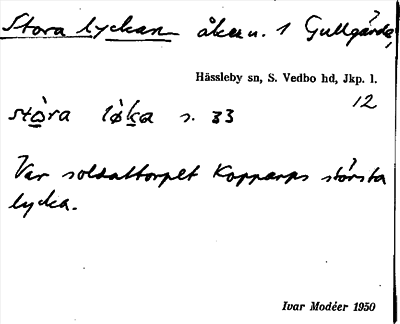 Stora lyckan åker u. 1 Gullgårde,
Hässleby sn, S. Vedbo hd, Jkp. l.
12
stòra lòka s. 33
Var soldattorpet Kopparps största
lycka.
Ivar Modéer 1950